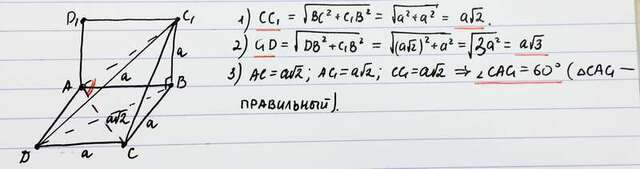 D₁ C₁
a
A a B
a√2 a
D a C
1) CC₁ = √BC² + C₁B² = √a² + a² = a√2
2) C₁D = √DB² + C₁B² = √(a√2)² + a² = √3a² = a√3
3) AC = a√2; AC₁ = a√2; CC₁ = a√2 ⇒ ∠CAC₁ = 60° (△CAC₁ —
правильный).